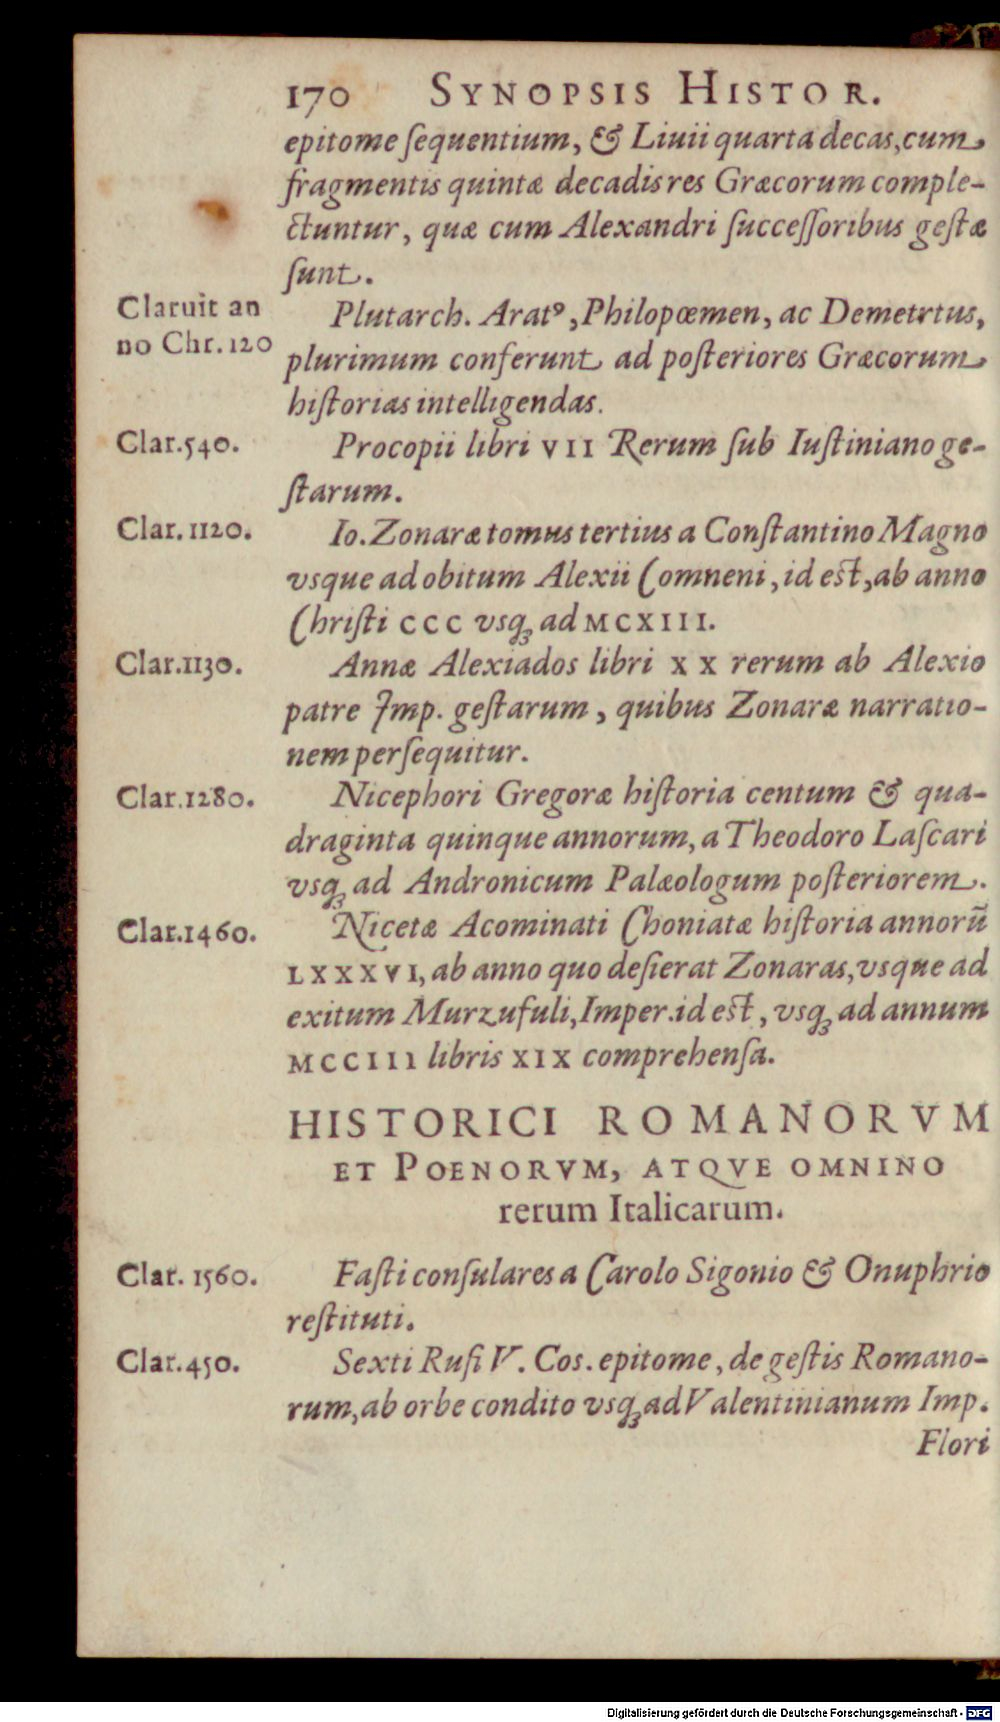 170 SYNOPSIS HISTOR.
epitome ſequentium, & Liuii quarta decas, cum
fragmentis quintæ decadis res Græcorum comple-
ctuntur, quæ cum Alexandri ſucceſſoribus geſtæ
ſunt.
Claruit an
no Chr. 120
Plutarch. Aratꝰ, Philopœmen, ac Demetrtus,
plurimum conferunt ad poſteriores Græcorum
hiſtorias intelligendas.
Clar. 540.
Procopii libri VII Rerum ſub Iuſtiniano ge-
ſtarum.
Clar. 1120.
Io. Zonaræ tomus tertius a Conſtantino Magno
vsque ad obitum Alexii Comneni, id est, ab anno
Chriſti CCC vsqꝫ ad MCXIII.
Clar. 1130.
Annæ Alexiados libri XX rerum ab Alexio
patre Imp. geſtarum, quibus Zonaræ narratio-
nem perſequitur.
Clar. 1280.
Nicephori Gregoræ hiſtoria centum & qua-
draginta quinque annorum, a Theodoro Laſcari
vsqꝫ ad Andronicum Palæologum poſteriorem.
Clar. 1460.
Nicetæ Acominati Choniatæ hiſtoria annorũ
LXXXVI, ab anno quo deſierat Zonaras, vsque ad
exitum Murzufuli, Imper. id est, vsqꝫ ad annum
MCCIII libris XIX comprehenſa.
HISTORICI ROMANORVM
ET POENORVM, ATQVE OMNINO
rerum Italicarum.
Clar. 1560.
Faſti conſulares a Carolo Sigonio & Onuphrio
reſtituti.
Clar. 450.
Sexti Rufi V. Cos. epitome, de geſtis Romano-
rum, ab orbe condito vsqꝫ ad Valentinianum Imp.
Flori
Digitalisierung gefördert durch die Deutsche Forschungsgemeinschaft - DFG